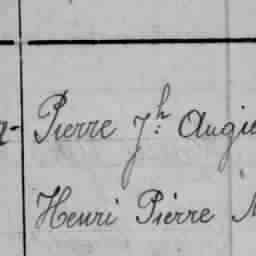 Pierre Jh. Augie
Henri Pierre